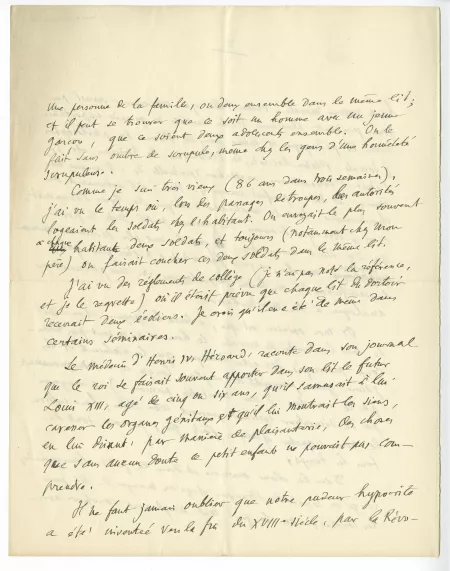 une personne de la famille, ou deux ensemble dans le même lit;
et il peut se trouver que ce soit un homme avec un jeune
garçon, que ce soient deux adolescents ensemble. On le
fait sans ombre de scrupule, même chez les gens d'une honnêteté
scrupuleuse.
Comme je suis très vieux (86 ans dans trois semaines),
j'ai vu le temps où, lors des passages de troupes, les autorités
logeaient les soldats chez l'habitant. On envoyait le plus souvent
a chaque habitant deux soldats, et toujours (notamment chez mon
père) on faisait coucher ces deux soldats dans le même lit.
J'ai vu des règlements de collège (je n'ai pas noté la référence,
et je le regrette) où il était prévu que chaque lit du dortoir
recevrait deux écoliers. Je crois qu'il en a été de même dans
certains séminaires.
Le médecin d'Henri IV, Héroard, raconte dans son journal
que le roi se faisait souvent apporter dans son lit le futur
Louis XIII, agé de cinq ou six ans, qu'il s'amusait à lui
caresser les organes génitaux et qu'il lui montrait les siens,
en lui disant, par manière de plaisanterie, des choses
que sans aucun doute ce petit enfant ne pouvait pas com-
prendre.
Il ne faut jamais oublier que notre pudeur hypocrite
a été inventée vers la fin du XVIIIe siècle, par la Révo-